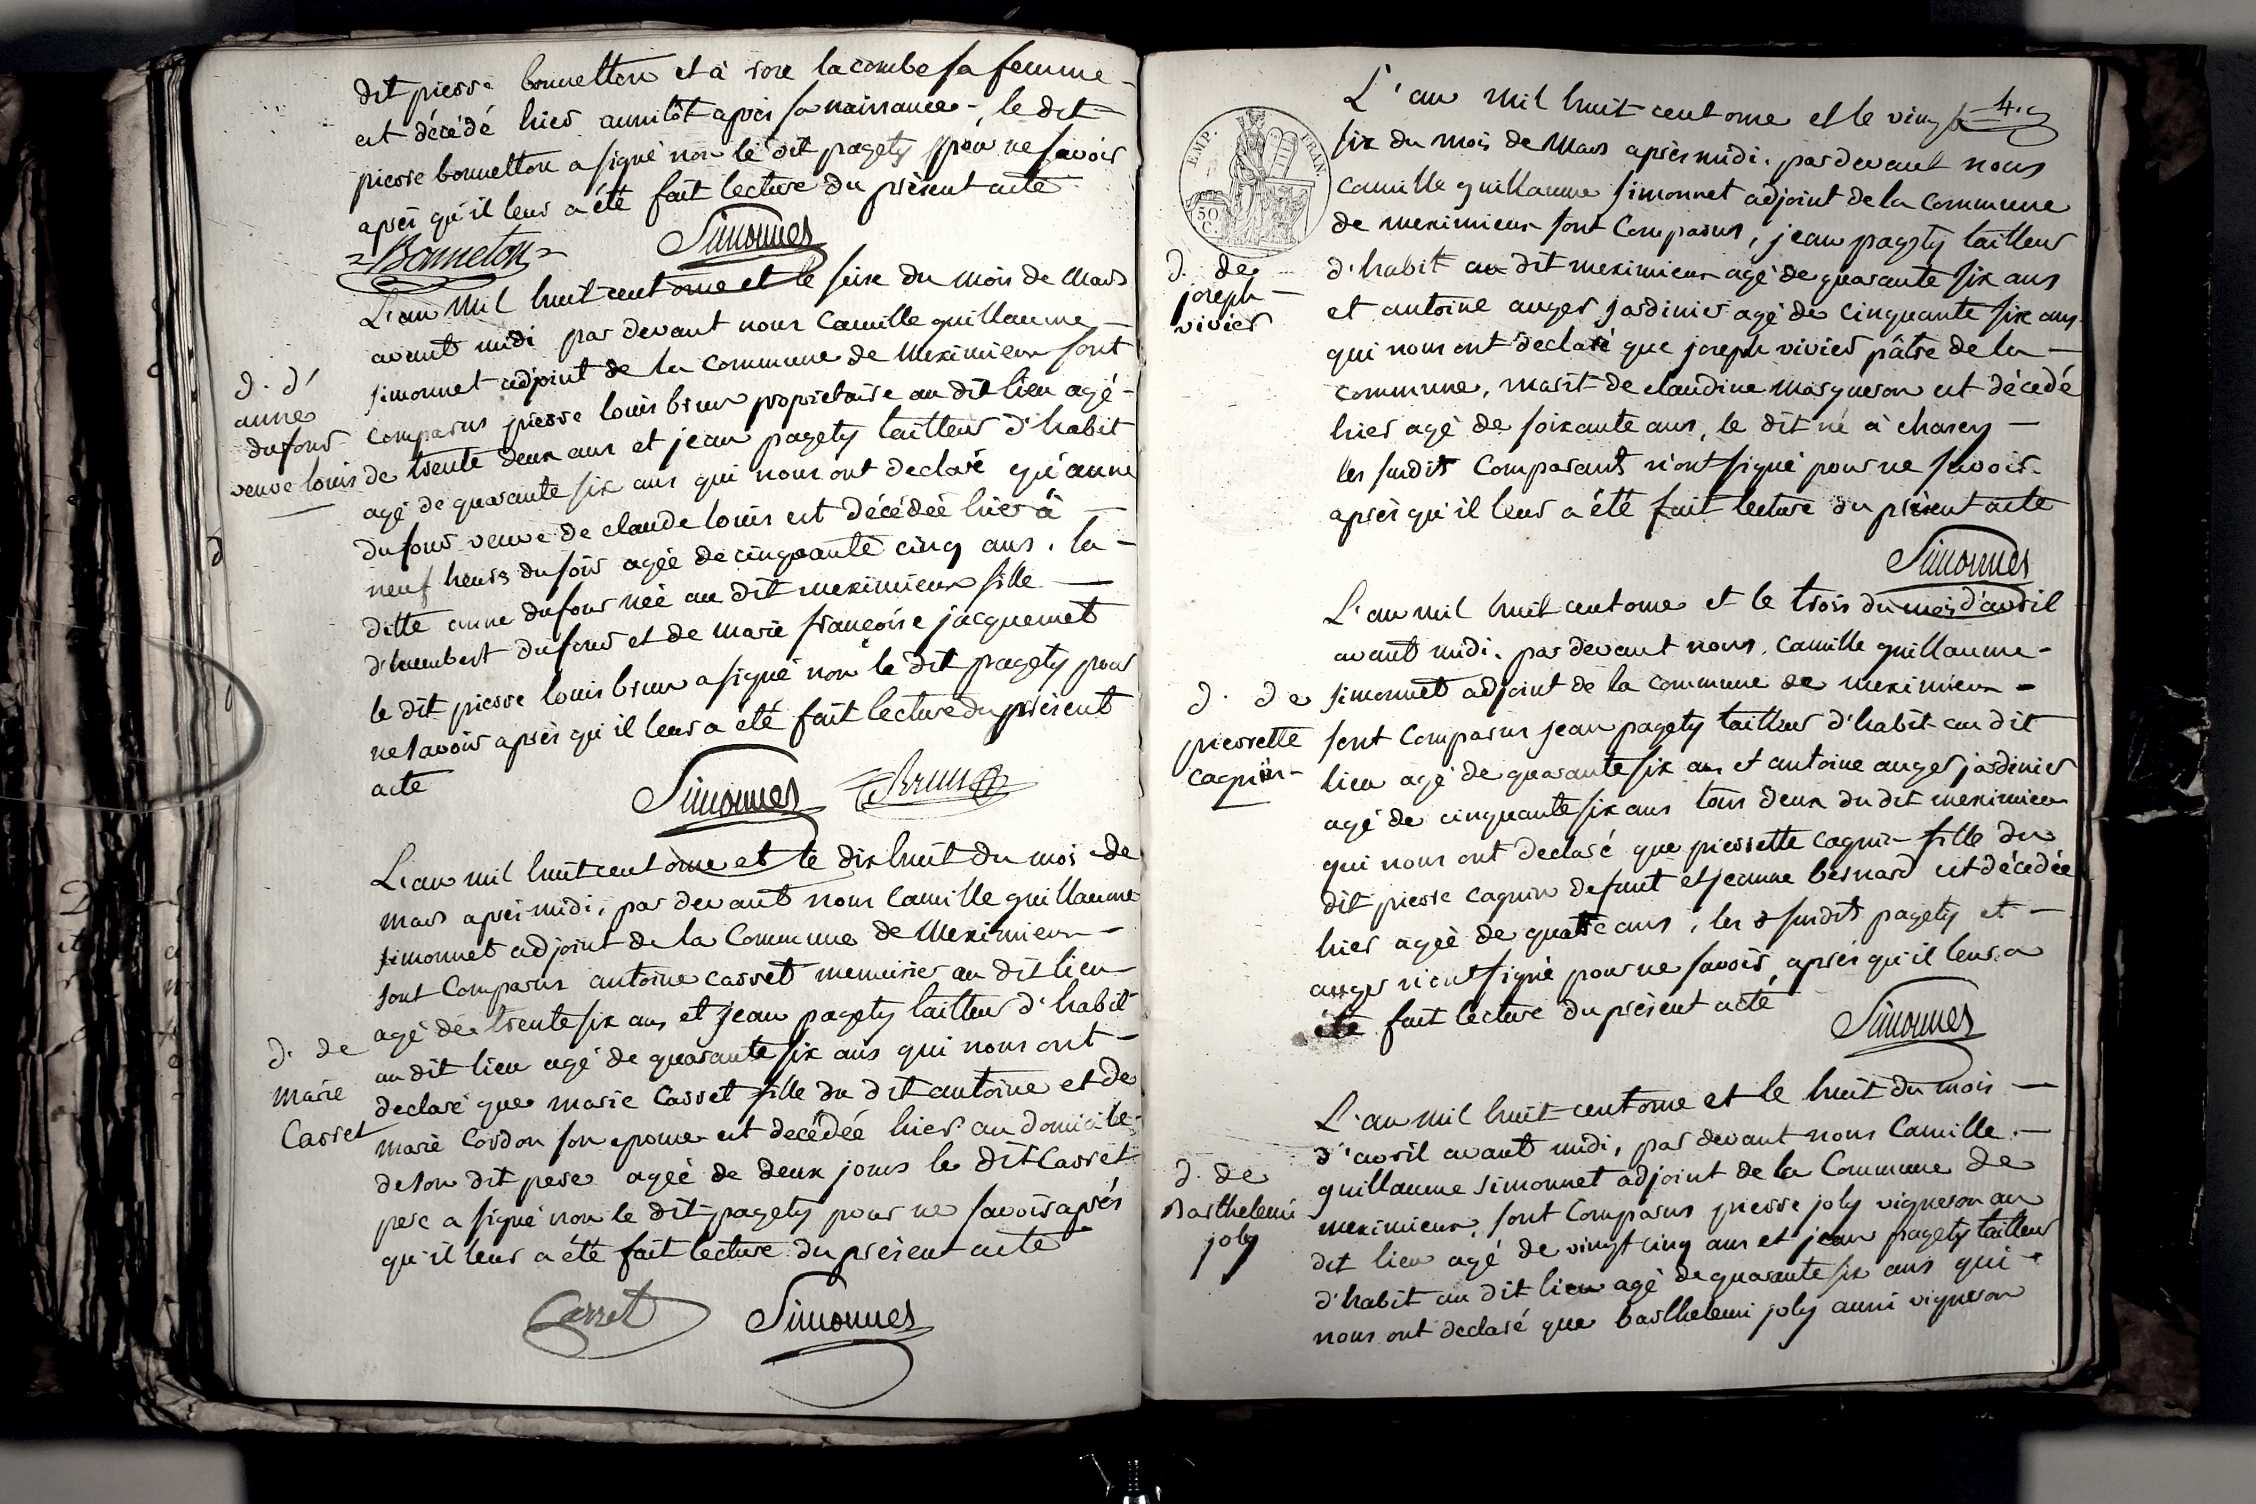 dit pierre bonnetton et à rose lacombe sa femme
est décédé hier aussitôt après sa naissance - le dit
pierre bonnetton a signé non le dit pagety pour ne savoir
après qu'il leur a été fait lecture du présent acte
=Bonneton=
Simonnet
L'an mil huit cent onze et le seize du mois de Mars
avant midi par devant nous Camille guillaume
simonnet adjoint de la commune de Meximieux sont
comparus pierre louis brun propriétaire au dit lieu agé
de trente deux ans et jean pagety tailleur d'habit
agé de quarante six ans qui nous ont declaré qu'anne
dufour veuve de claude louis est décédée hier à
neuf heures du soir agée de cinquante cinq ans. la
ditte anne dufour née au dit meximieux fille
d'humbert dufour et de marie françoise jacquemet
le dit pierre louis brun a signé non le dit pagety pour
ne savoir après qu'il leur a été fait lecture du présent
acte
d. d'
anne
dufour
veuve louis
Simonnet
Brun
L'an mil huit cent onze et le dix huit du mois de
mars après midi, par devant nous Camille guillaume
simonnet adjoint de la Commune de Meximieux
sont Comparus antoine carret menuisier au dit lieu
agé de trente six ans et jean pagety tailleur d'habit
au dit lieu agé de quarante six ans qui nous ont
declaré que marie Carret fille du dit antoine et de
marie Cordon son epouse est decédée hier au domicile
de son dit pere agée de deux jours le dit Carret
pere a signé non le dit pagety pour ne savoir après
qu'il leur a été fait lecture du présent acte
d. de
marie
Carret
Carret
Simonnet
4.
L'an mil huit cent onze et le vingt
six du mois de Mars après midi. par devant nous
camille guillaume simonnet adjoint de la commune
de meximieux sont Comparus, jean pagety tailleur
d'habit au dit meximieux agé de quarante six ans
et antoine auger jardinier agé de cinquante six ans
qui nous ont declaré que joseph vivier pâtre de la
commune, marit de claudine marqueron est décedé
hier agé de soixante ans, le dit né à charey
les susdits comparants n'ont signé pour ne savoir
après qu'il leur a été fait lecture du présent acte
EMP. FRAN.
50
C.
d. de
joseph
vivier
Simonnet
L'an mil huit cent onze et le trois du mois d'avril
avant midi. par devant nous. camille guillaume
simonnet adjoint de la commune de meximieux
sont Comparus jean pagety tailleur d'habit au dit
lieu agé de quarante six ans et antoine auger jardinier
agé de cinquante six ans tous deux du dit meximieux
qui nous ont declaré que pierrette cagnin fille du
dit pierre cagnin defunt et jeanne bernard est décedée
hier agée de quatre ans, les susdits pagety et
auger n'ont signé pour ne savoir, après qu'il leur a
été fait lecture du présent acté
d. de
pierrette
cagnin
Simonnet
L'an mil huit cent onze et le huit du mois
d'avril avant midi, par devant nous Camille
guillaume simonnet adjoint de la Commune de
meximieux, sont Comparus pierre joly vigneron au
dit lieu agé de vingt cinq ans et jean pagety tailleur
d'habit au dit lieu agé de quarante six ans qui
nous ont declaré que barthelemi joly aussi vigneron
d. de
Barthelemi
joly